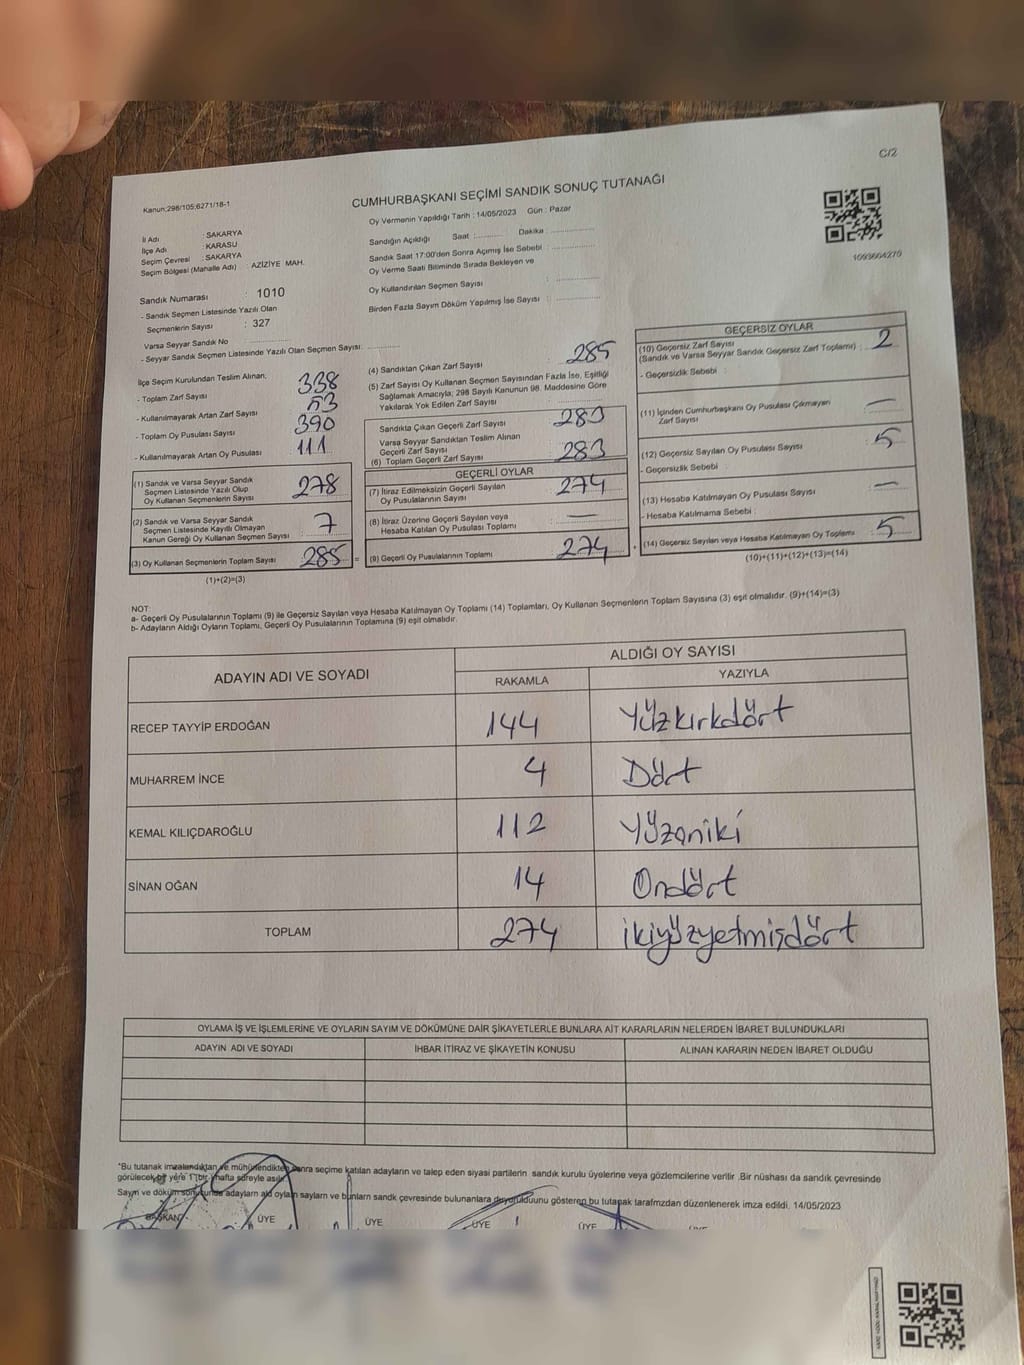 C/2
Kanun;298/105;6271/18-1
CUMHURBAŞKANI SEÇİMİ SANDIK SONUÇ TUTANAĞI
Oy Vermenin Yapıldığı Tarih : 14/05/2023 Gün : Pazar
1093604270
İl Adı : SAKARYA
İlçe Adı : KARASU
Seçim Çevresi : SAKARYA
Seçim Bölgesi (Mahalle Adı) : AZİZİYE MAH.
Sandık Numarası : 1010
- Sandık Seçmen Listesinde Yazılı Olan
Seçmenlerin Sayısı : 327
Varsa Seyyar Sandık No
- Seyyar Sandık Seçmen Listesinde Yazılı Olan Seçmen Sayısı:
Sandığın Açıldığı Saat : Dakika :
Sandık Saat 17:00'den Sonra Açımış İse Sebebi :
Oy Verme Saati Bitiminde Sırada Bekleyen ve
Oy Kullandırılan Seçmen Sayısı :
Birden Fazla Sayım Döküm Yapılmış İse Sayısı :
İlçe Seçim Kurulundan Teslim Alınan;
- Toplam Zarf Sayısı 338
- Kullanılmayarak Artan Zarf Sayısı 53
- Toplam Oy Pusulası Sayısı 390
- Kullanılmayarak Artan Oy Pusulası 111
(1) Sandık ve Varsa Seyyar Sandık
Seçmen Listesinde Yazılı Olup
Oy Kullanan Seçmenlerin Sayısı 278
(2) Sandık ve Varsa Seyyar Sandık
Seçmen Listesinde Kayıtlı Olmayan
Kanun Gereği Oy Kullanan Seçmen Sayısı : 7
(3) Oy Kullanan Seçmenlerin Toplam Sayısı 285 =
(1)+(2)=(3)
(4) Sandıktan Çıkan Zarf Sayısı : 285
(5) Zarf Sayısı Oy Kullanan Seçmen Sayısından Fazla İse, Eşitliği
Sağlamak Amacıyla; 298 Sayılı Kanunun 98. Maddesine Göre
Yakılarak Yok Edilen Zarf Sayısı :
Sandıkta Çıkan Geçerli Zarf Sayısı : 283
Varsa Seyyar Sandıktan Teslim Alınan
Geçerli Zarf Sayısı :
(6) Toplam Geçerli Zarf Sayısı : 283
GEÇERLİ OYLAR
(7) İtiraz Edilmeksizin Geçerli Sayılan
Oy Pusulalarının Sayısı : 274
(8) İtiraz Üzerine Geçerli Sayılan veya
Hesaba Katılan Oy Pusulası Toplamı : —
(9) Geçerli Oy Pusulalarının Toplamı : 274 +
GEÇERSİZ OYLAR
(10) Geçersiz Zarf Sayısı
(Sandık ve Varsa Seyyar Sandık Geçersiz Zarf Toplamı) : 2
- Geçersizlik Sebebi :
(11) İçinden Cumhurbaşkanı Oy Pusulası Çıkmayan
Zarf Sayısı : —
(12) Geçersiz Sayılan Oy Pusulası Sayısı : 5
- Geçersizlik Sebebi :
(13) Hesaba Katılmayan Oy Pusulası Sayısı : —
- Hesaba Katılmama Sebebi :
(14) Geçersiz Sayılan veya Hesaba Katılmayan Oy Toplamı : 5
(10)+(11)+(12)+(13)=(14)
NOT:
a- Geçerli Oy Pusulalarının Toplamı (9) ile Geçersiz Sayılan veya Hesaba Katılmayan Oy Toplamı (14) Toplamları, Oy Kullanan Seçmenlerin Toplam Sayısına (3) eşit olmalıdır. (9)+(14)=(3)
b- Adayların Aldığı Oyların Toplamı, Geçerli Oy Pusulalarının Toplamına (9) eşit olmalıdır.
ADAYIN ADI VE SOYADI
ALDIĞI OY SAYISI
RAKAMLA YAZIYLA
RECEP TAYYİP ERDOĞAN 144 Yüzkırkdört
MUHARREM İNCE 4 Dört
KEMAL KILIÇDAROĞLU 112 Yüzoniki
SİNAN OĞAN 14 Ondört
TOPLAM 274 ikiyüzyetmişdört
OYLAMA İŞ VE İŞLEMLERİNE VE OYLARIN SAYIM VE DÖKÜMÜNE DAİR ŞİKAYETLERLE BUNLARA AİT KARARLARIN NELERDEN İBARET BULUNDUKLARI
ADAYIN ADI VE SOYADI İHBAR İTİRAZ VE ŞİKAYETİN KONUSU ALINAN KARARIN NEDEN İBARET OLDUĞU
*Bu tutanak imzalandıktan ve mühürlendikten sonra seçime katılan adayların ve talep eden siyasi partilerin sandık kurulu üyelerine veya gözlemcilerine verilir. Bir nüshası da sandık çevresinde
görülecek bir yere 1 bir hafta süreyle asılır.
Sayım ve döküm sonucunda adayların aldı oyların sayıların ve bunların sandık çevresinde bulunanlara duyurulduğunu gösteren bu tutanak tarafımızdan düzenlenerek imza edildi. 14/05/2023
BAŞKAN ÜYE ÜYE ÜYE ÜYE